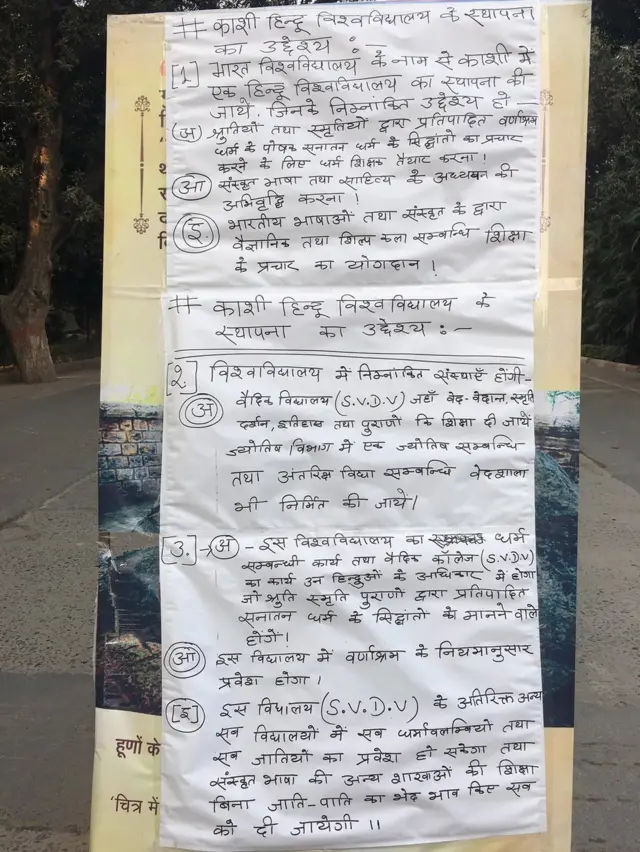 # काशी हिन्दू विश्वविद्यालय के स्थापना
का उद्देश्य :—
[1] भारत विश्वविद्यालय के नाम से काशी में
एक हिन्दू विश्वविद्यालय का स्थापना की
जाये, जिनके निम्नांकित उद्देश्य हो —
(अ) श्रुतियों तथा स्मृतियों द्वारा प्रतिपादित वर्णाश्रम
धर्म के पोषक सनातन धर्म के सिद्धांतो का प्रचार
करने के लिए धर्म शिक्षक तैयार करना!
(आ) संस्कृत भाषा तथा साहित्य के अध्ययन की
अभिवृद्धि करना!
(इ) भारतीय भाषाओं तथा संस्कृत के द्वारा
वैज्ञानिक तथा शिल्प कला सम्बन्धि शिक्षा
के प्रचार का योगदान!
# काशी हिन्दू विश्वविद्यालय के
स्थापना का उद्देश्य :—
[2.] विश्वविद्यालय में निम्नांकित संस्थाएँ होंगी—
(अ) वैदिक विद्यालय (S.V.D.V) जहाँ वेद-वेदान्त, स्मृति
दर्शन, इतिहास तथा पुराणो कि शिक्षा दी जाये
ज्योतिष विभाग में एक ज्योतिष सम्बन्धि
तथा अंतरिक्ष विद्या सम्बन्धि वेदशाला
भी निर्मित की जाये/
[3.]→(अ) - इस विश्वविद्यालय का धर्म
सम्बन्धी कार्य तथा वैदिक कॉलेज (S.V.D.V)
का कार्य उन हिन्दुओं के अधिकार में होगा
जो श्रुति स्मृति पुराणो द्वारा प्रतिपादित
सनातन धर्म के सिद्धांतो के मानने वाले
होंगे!
(आ) इस विद्यालय में वर्णाश्रम के नियमानुसार
प्रवेश होगा।
[इ] इस विद्यालय (S.V.D.V) के अतिरिक्त अन्य
सब विद्यालयों में सब धर्मावलम्बियो तथा
सब जातियों का प्रवेश हो सकेगा तथा
संस्कृत भाषा की अन्य शाखाओं की शिक्षा
बिना जाति-पाति का भेद भाव किए सब
को दी जायेगी।।
हूणों के
'चित्र में